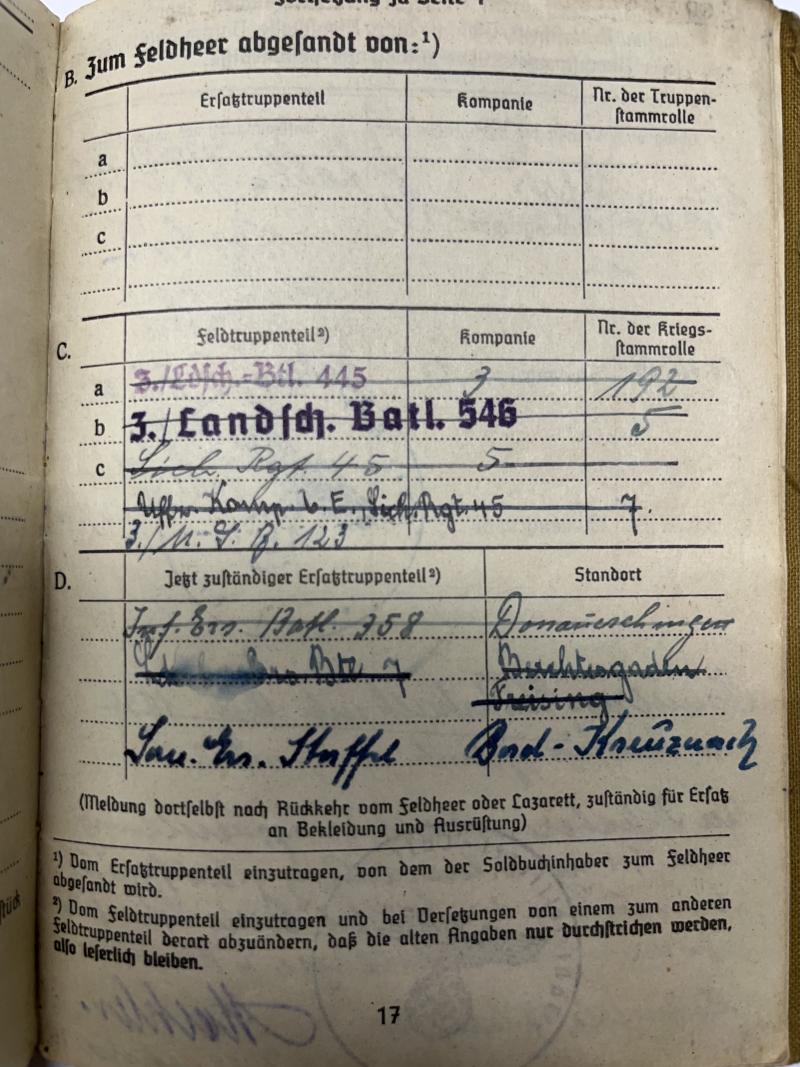 Fortsetzung zu Seite 4
B. Zum Feldheer abgesandt von:¹)
Ersatztruppenteil Kompanie Nr. der Truppenstammrolle
a
b
c
C. Feldtruppenteil²) Kompanie Nr. der Kriegsstammrolle
a 3./Ldsch.-Btl. 445 3 192
b 3./Landsch. Batl. 546 5
c Sich. Rgt. 45 5
Komp. b. E., Sich. Rgt. 45 7.
3./ 123
D. Jetzt zuständiger Ersatztruppenteil²) Standort
Inf. Ers. Batl. 358 Donaueschingen
Btl. 7 Berchtesgaden
Freising
San. Ers. Staffel Bad-Kreuznach
(Meldung dortselbst nach Rückkehr vom Feldheer oder Lazarett, zuständig für Ersatz
an Bekleidung und Ausrüstung)
¹) Vom Ersatztruppenteil einzutragen, von dem der Soldbuchinhaber zum Feldheer
abgesandt wird.
²) Vom Feldtruppenteil einzutragen und bei Versetzungen von einem zum anderen
Feldtruppenteil derart abzuändern, daß die alten Angaben nur durchstrichen werden,
also leserlich bleiben.
17